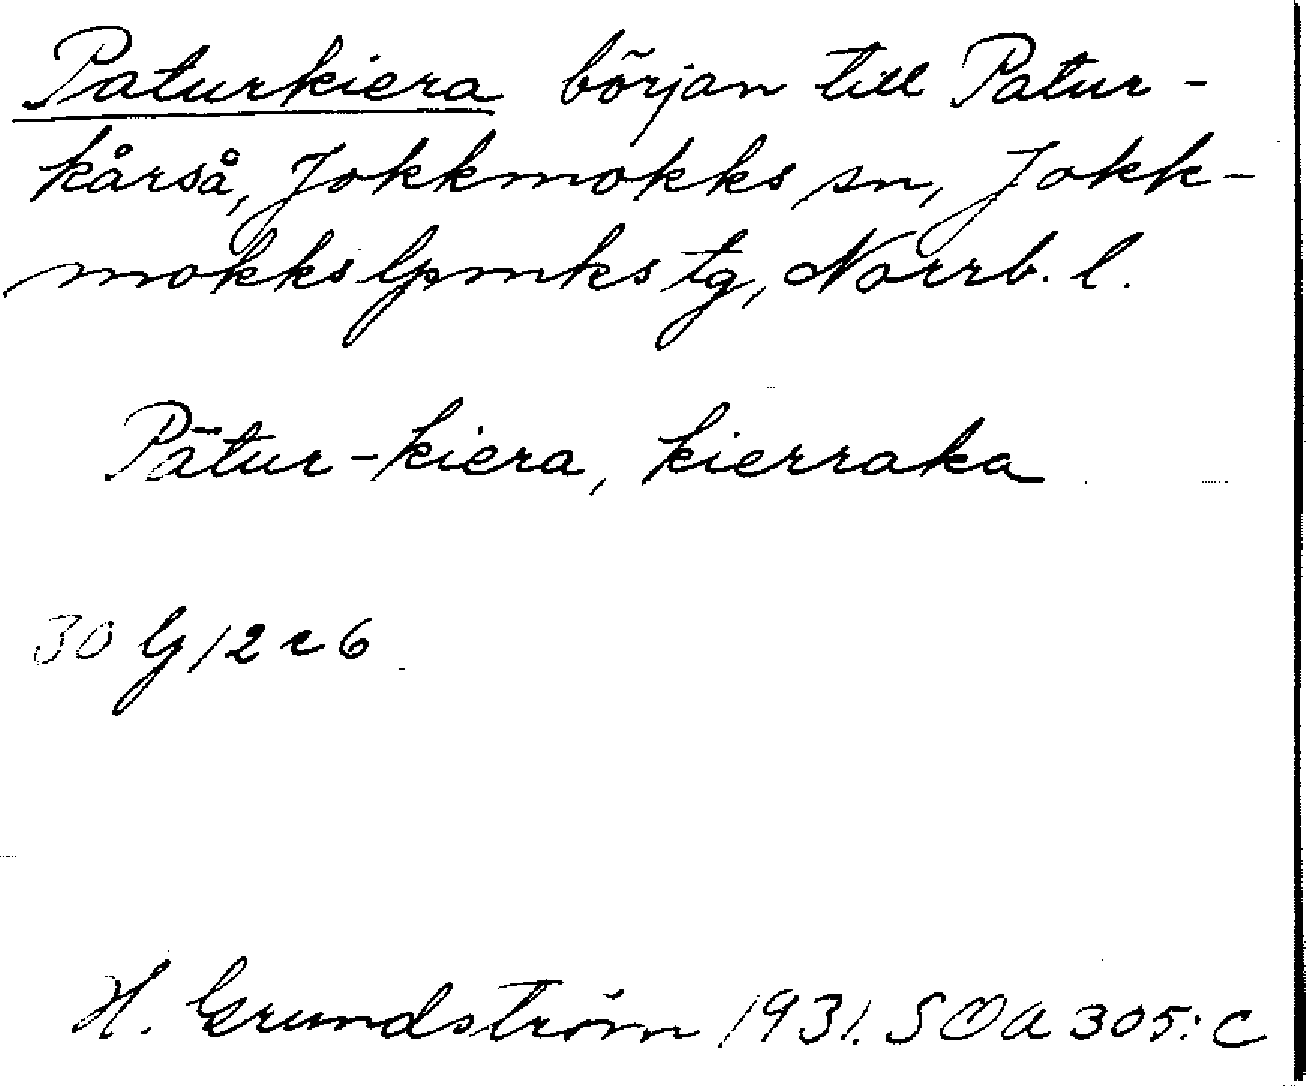 Paturkiera början till Patur-
kårså, Jokkmokks sn, Jokk-
mokks lpmks tg, Norrb. l.
Pātur-kiera, kierraka
30 G/2 c 6
H. Grundström 1931. SOA 305:C